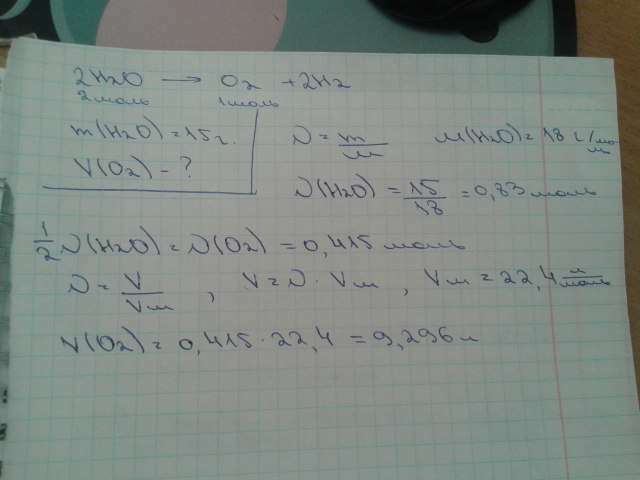 2H₂O → O₂ + 2H₂
2моль 1моль
m(H₂O) = 15г. ν = m/M M(H₂O) = 18 г/моль
V(O₂) - ?
ν(H₂O) = 15/18 = 0,83 моль
1/2 ν(H₂O) = ν(O₂) = 0,415 моль
ν = V/Vм , V = ν · Vм , Vм = 22,4 л/моль
V(O₂) = 0,415 · 22,4 = 9,296 л